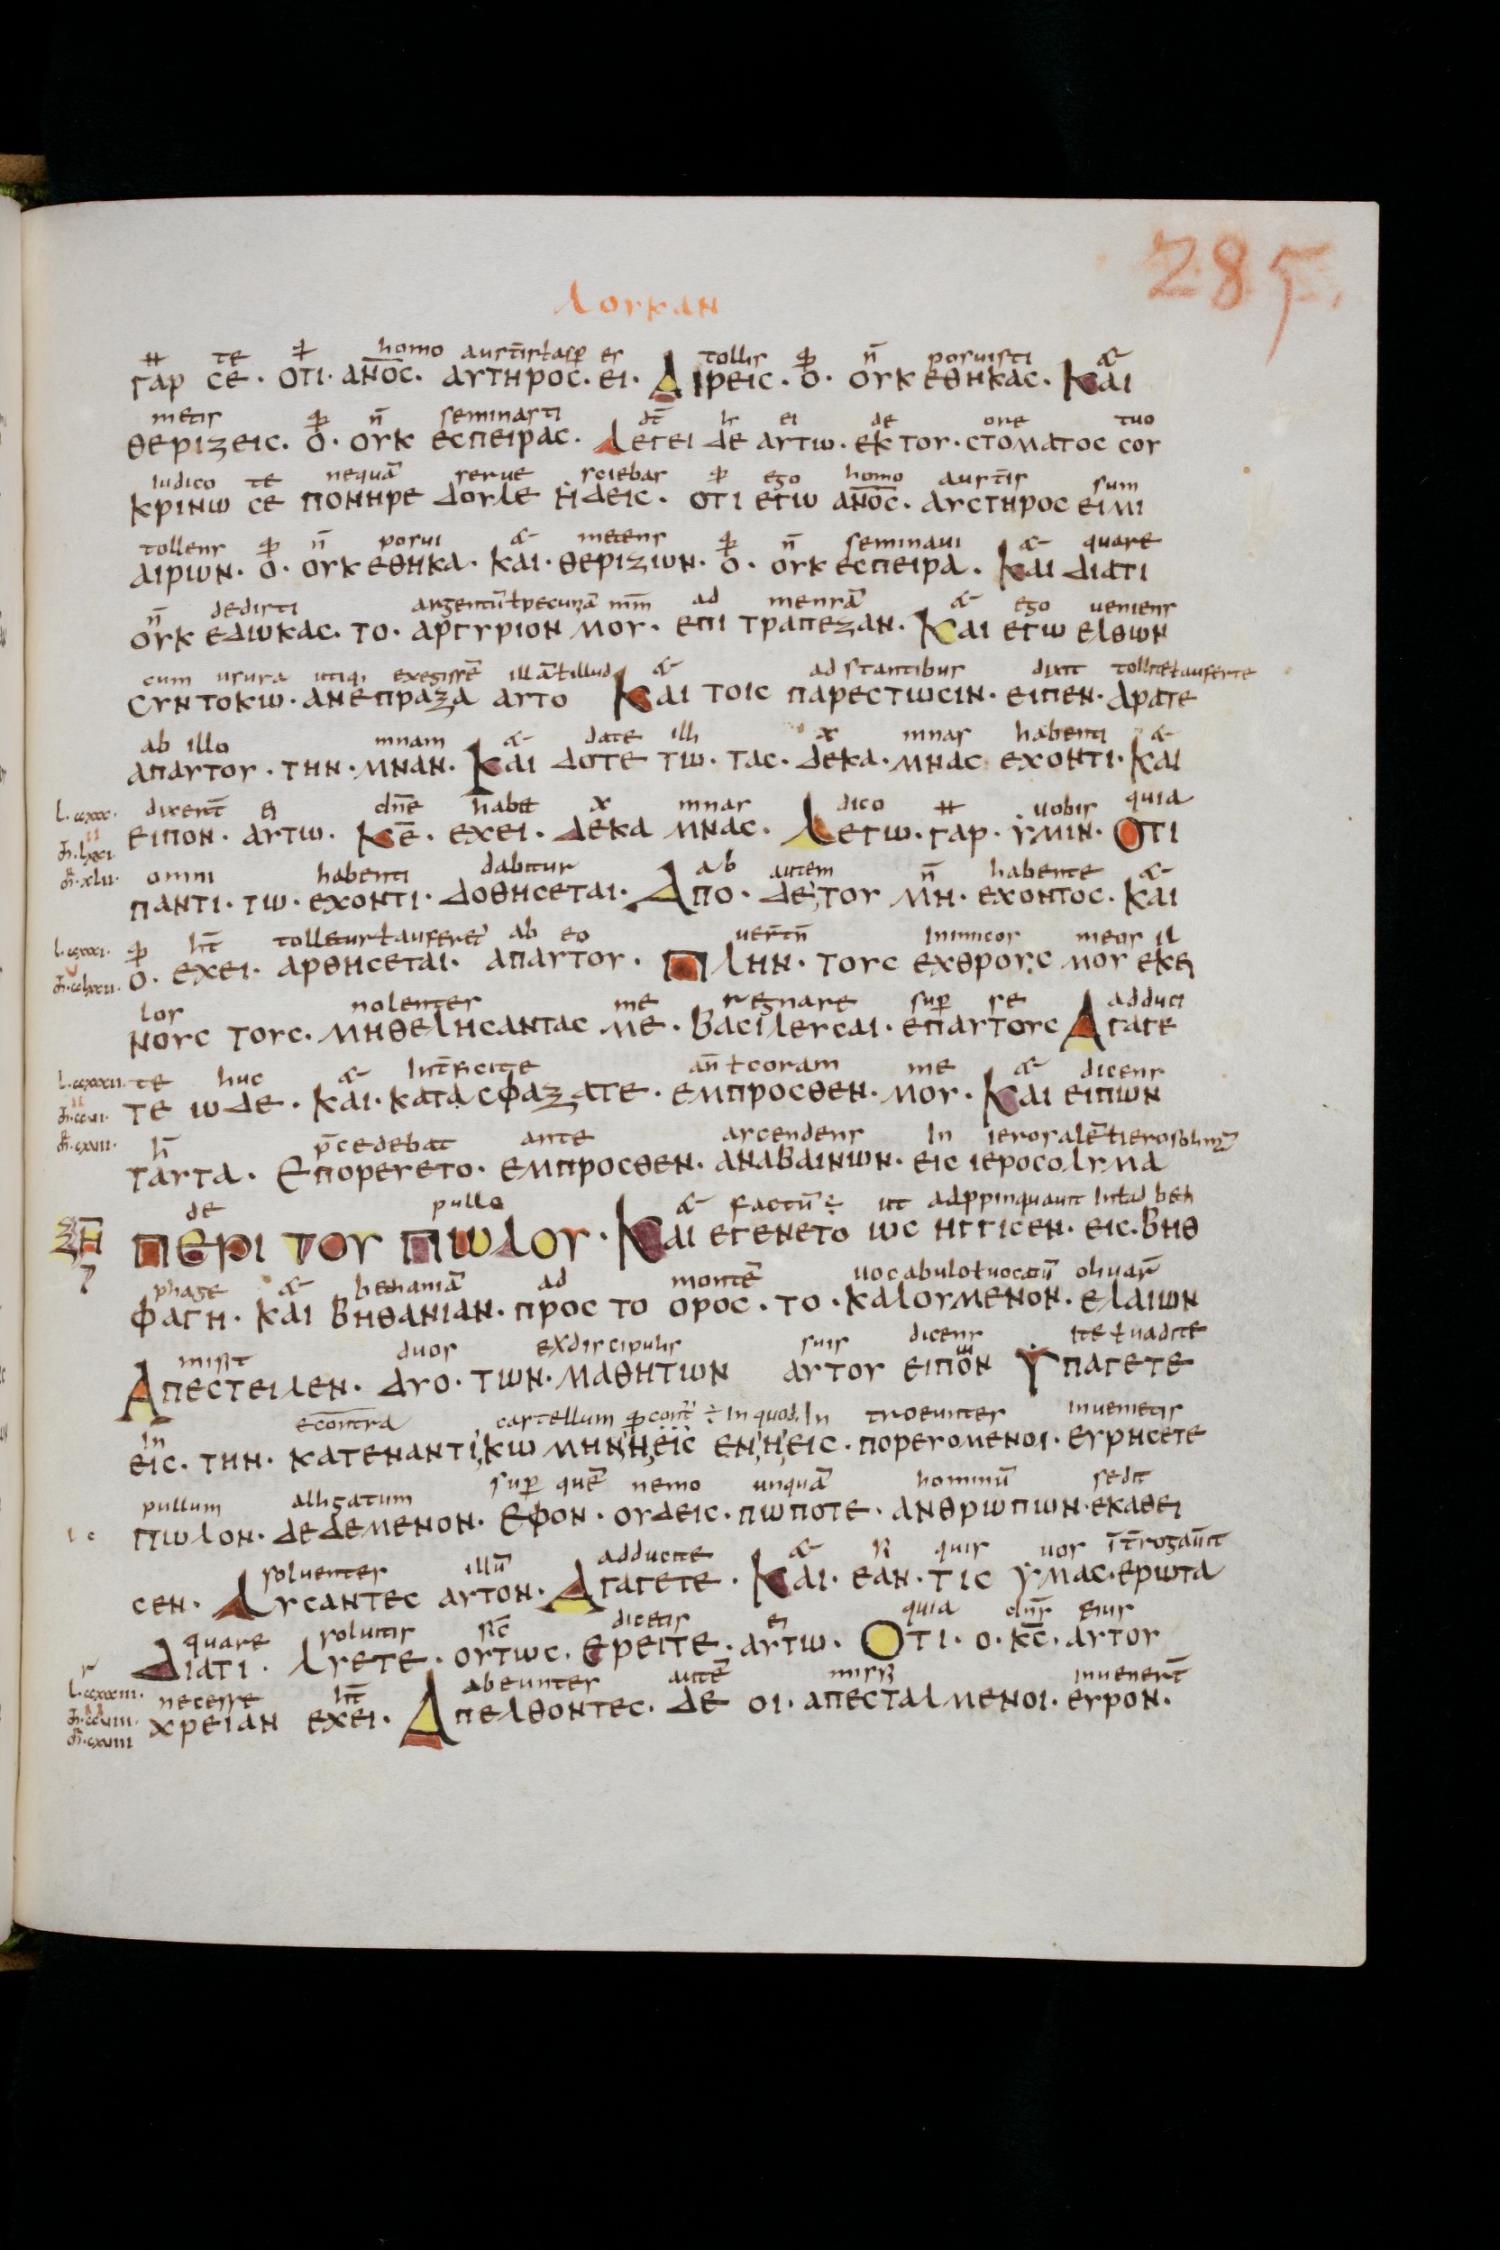 285.
ΛΟΥΚΑΝ
te homo es tollis n̄ posuisti &
ΓΑΡ CΕ· ΟΤΙ· ΑΝ̅Ο̅C̅· ΑΥΤΗΡΟC· ΕΙ· ΑΙΡΕΙC· Ο· ΟΥΚ ΕΘΗΚΑC· ΚΑΙ
metis n̄ seminasti dt̄ ei de ore tuo
ΘΕΡΙΖΕΙC· Ο· ΟΥΚ ΕCΠΕΙΡΑC· ΛΕΓΕΙ ΔΕ ΑΥΤΩ· ΕΚ ΤΟΥ· CΤΟΜΑΤΟC CΟΥ
Iudico te nequā serue sciebas ego homo sum
ΚΡΙΝΩ CΕ ΠΟΝΗΡΕ ΔΟΥΛΕ ΗΔΕΙC· ΟΤΙ ΕΓΩ ΑΝ̅Ο̅C̅· ΑΥCΤΗΡΟC ΕΙΜΙ
tollens n̄ posui & metens n̄ seminaui & quare
ΑΙΡΙΩΝ· Ο· ΟΥΚ ΕΘΗΚΑ· ΚΑΙ· ΘΕΡΙΖΙΩΝ· Ο· ΟΥΚ ΕCΠΕΙΡΑ· ΚΑΙ ΔΙΑΤΙ
n̄ dedisti argentū ł pecuniā mm̄ ad mensā & ego ueniens
ΟΥΚ ΕΔΙΩΚΑC· ΤΟ· ΑΡΓΥΡΙΟΝ ΜΟΥ· ΕΠΙ ΤΡΑΠΕΖΑΝ· ΚΑΙ ΕΓΩ ΕΛΘΩΝ
cum usura utiq; exegissē illā ł illud & adstantibus dixit tollite ł auferte
CΥΝ ΤΟΚΩ· ΑΝΕΠΡΑΞΑ ΑΥΤΟ ΚΑΙ ΤΟΙC ΠΑΡΕCΤΩCΙΝ· ΕΙΠΕΝ· ΑΡΑΤΕ
ab illo mnam & date illi x mnas habenti &
ΑΠΑΥΤΟΥ· ΤΗΝ· ΜΝΑΝ· ΚΑΙ ΔΟΤΕ ΤΩ· ΤΑC· ΔΕΚΑ· ΜΝΑC ΕΧΟΝΤΙ· ΚΑΙ
dixert̄ ei dn̄e habet x mnas dico uobis quia
ΕΙΠΟΝ· ΑΥΤΩ· Κ̅Ε̅· ΕΧΕΙ· ΔΕΚΑ ΜΝΑC· ΛΕΓΩ· ΓΑΡ· ΥΜΙΝ· ΟΤΙ
omni habenti dabitur ab autem n̄ habente &
ΠΑΝΤΙ· ΤΩ· ΕΧΟΝΤΙ· ΔΟΘΗCΕΤΑΙ· ΑΠΟ· ΔΕ ΤΟΥ ΜΗ· ΕΧΟΝΤΟC· ΚΑΙ
ht̄ tolletur ł ab eo inimicos meos il
Ο· ΕΧΕΙ· ΑΡΘΗCΕΤΑΙ· ΑΠΑΥΤΟΥ· ΠΛΗΝ· ΤΟΥC ΕΧΘΡΟΥC ΜΟΥ ΕΚΕΙ
los nolentes me regnare sup̄ se adduci
ΝΟΥC ΤΟΥC· ΜΗΘΕΛΗCΑΝΤΑC ΜΕ· ΒΑCΙΛΕΥCΑΙ· ΕΠΑΥΤΟΥC ΑΓΑΓΕ
te huc & Int̄ficite an̄ ł coram me & dicens
ΤΕ ΙΩΔΕ· ΚΑΙ· ΚΑΤΑCΦΑΞΑΤΕ· ΕΜΠΡΟCΘΕΝ· ΜΟΥ· ΚΑΙ ΕΙΠΩΝ
h̄ p̄cedebat ante ascendens In ierosalē ł ierosolimā
ΤΑΥΤΑ· ΕΠΟΡΕΥΕΤΟ· ΕΜΠΡΟCΘΕΝ· ΑΝΑΒΑΙΝΩΝ· ΕΙC ΙΕΡΟCΟΛΥΜΑ
de pullo & factū ÷ ut adppinquauit In ł ad beth
ΠΕΡΙ ΤΟΥ ΠΩΛΟΥ· ΚΑΙ ΕΓΕΝΕΤΟ ΙΩC ΗΓΓΙCΕΝ· ΕΙC· ΒΗΘ
phage & bethaniā ad montē uocabulo ł uocatū oliuar̄
ΦΑΓΗ· ΚΑΙ ΒΗΘΑΝΙΑΝ· ΠΡΟC ΤΟ ΟΡΟC· ΤΟ· ΚΑΛΟΥΜΕΝΟΝ· ΕΛΑΙΩΝ
misit duos ex discipulis suis dicens ite ł uadite
ΑΠΕCΤΕΙΛΕΝ· ΔΥΟ· ΤΩΝ· ΜΑΘΗΤΙΩΝ ΑΥΤΟΥ ΕΙΠΟΝ ΥΠΑΓΕΤΕ
In econtra castellum In quod In troeuntes inuenietis
ΕΙC· ΤΗΝ· ΚΑΤΕΝΑΝΤΙ ΚΩΜΗΝ ΗΕΙC ΕΝ Η ΕΙC· ΠΟΡΕΥΟΜΕΝΟΙ· ΕΥΡΗCΕΤΕ
pullum alligatum sup̄ quē nemo unquā hominū sedit
ΠΩΛΟΝ· ΔΕΔΕΜΕΝΟΝ· ΕΦΟΝ· ΟΥΔΕΙC· ΠΩΠΟΤΕ· ΑΝΘΡΩΠΙΩΝ· ΕΚΑΘΕΙ
soluentes illū adducite & si quis uos īt̄rogauit
CΕΝ· ΛΥCΑΝΤΕC ΑΥΤΟΝ· ΑΓΑΓΕΤΕ· ΚΑΙ· ΕΑΝ· ΤΙC ΥΜΑC· ΕΡΩΤΑ
quare soluitis sic̄ dicetis ei quia dn̄s eius
ΔΙΑΤΙ· ΛΥΕΤΕ· ΟΥΤΩC· ΕΡΕΙΤΕ· ΑΥΤΩ· ΟΤΙ· Ο· Κ̅C̅· ΑΥΤΟΥ
necesse ht̄ abeuntes autē missi inuenert̄
ΧΡΕΙΑΝ ΕΧΕΙ· ΑΠΕΛΘΟΝΤΕC· ΔΕ ΟΙ· ΑΠΕCΤΑΛΜΕΝΟΙ· ΕΥΡΟΝ·